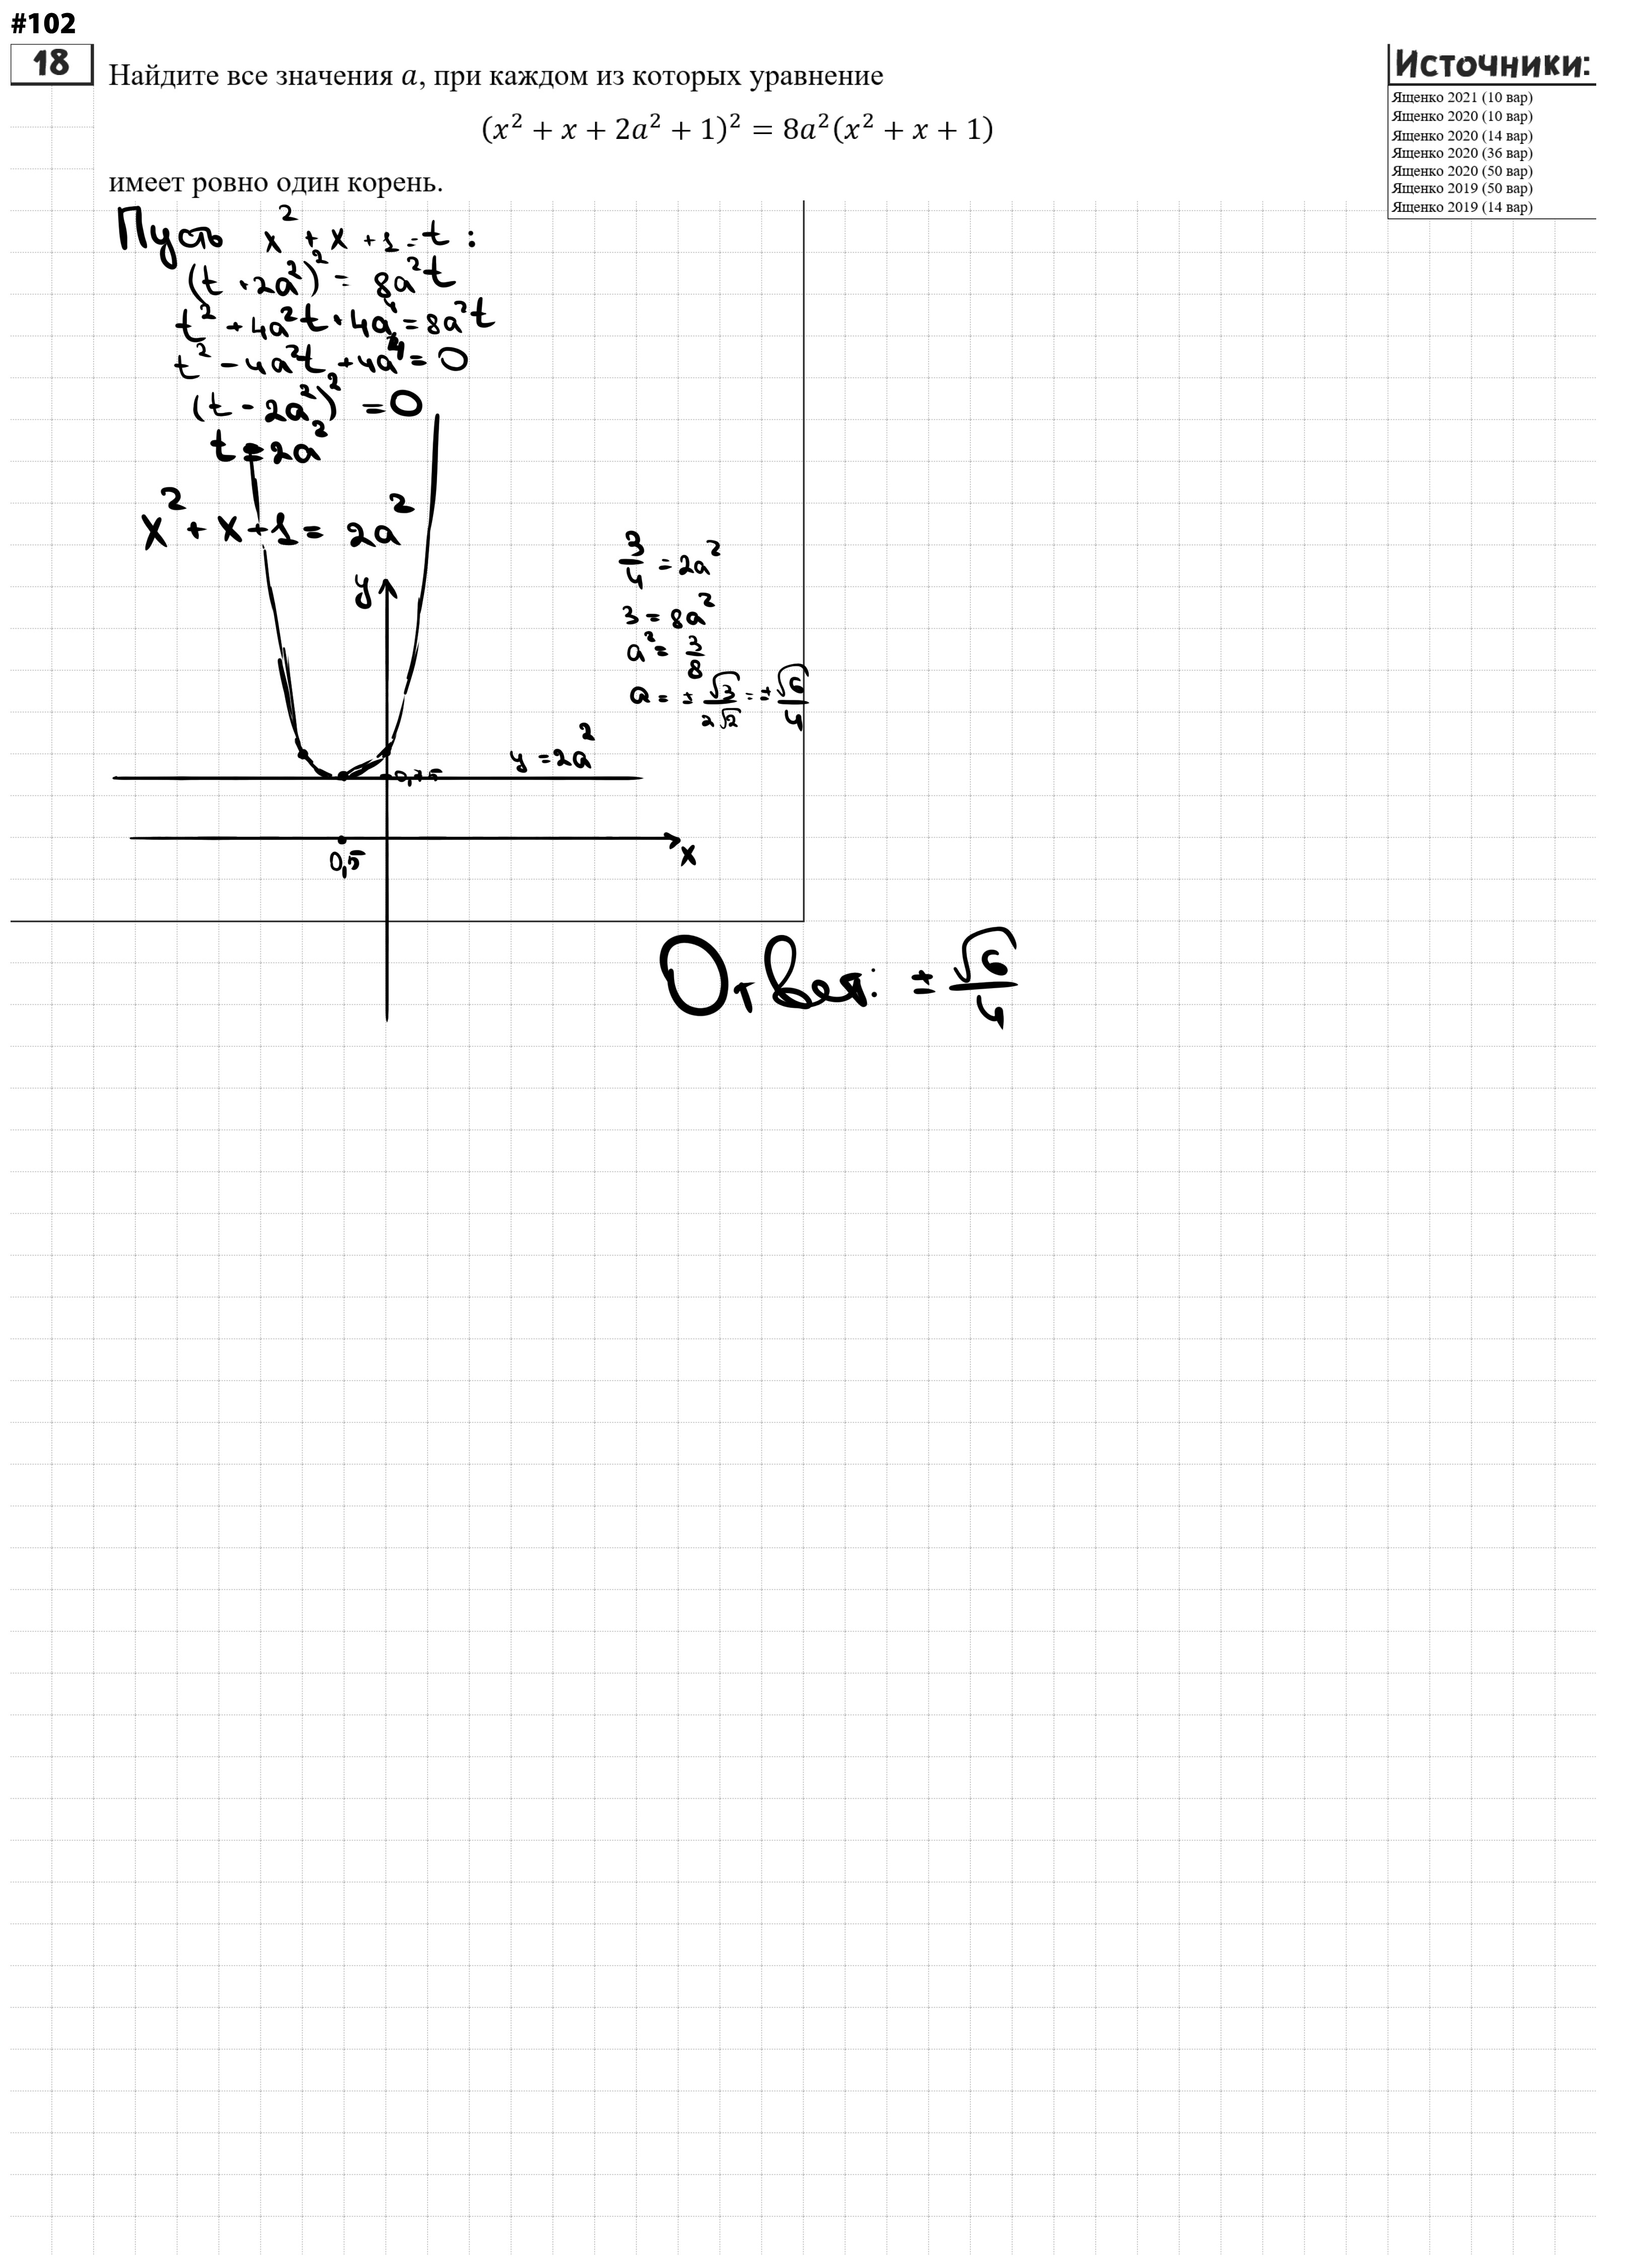 #102
18
Найдите все значения a, при каждом из которых уравнение
(x² + x + 2a² + 1)² = 8a²(x² + x + 1)
имеет ровно один корень.
Источники:
Ященко 2021 (10 вар)
Ященко 2020 (10 вар)
Ященко 2020 (14 вар)
Ященко 2020 (36 вар)
Ященко 2020 (50 вар)
Ященко 2019 (50 вар)
Ященко 2019 (14 вар)
Пусть x² + x + 1 = t :
(t + 2a²)² = 8a²t
t² + 4a²t + 4a⁴ = 8a²t
t² - 4a²t + 4a⁴ = 0
(t - 2a²)² = 0
t = 2a²
x² + x + 1 = 2a²
y
3/4 = 2a²
3 = 8a²
a² = 3/8
a = ± √3/2√2 = ± √6/4
y = 2a²
0,75
x
0,5
Ответ: ± √6/4